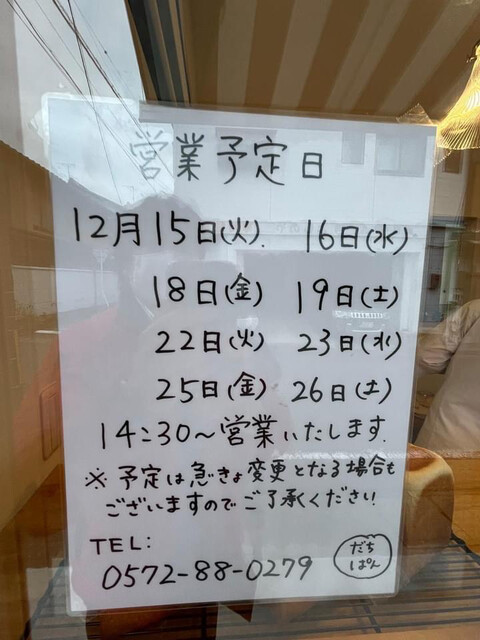 営業予定日
12月15日(火). 16日(水)
18日(金) 19日(土)
22日(火) 23日(水)
25日(金) 26日(土)
14:30〜営業いたします.
※ 予定は急きょ変更となる場合も
ございますのでご了承ください!
TEL:
0572-88-0279
だち
ぱん